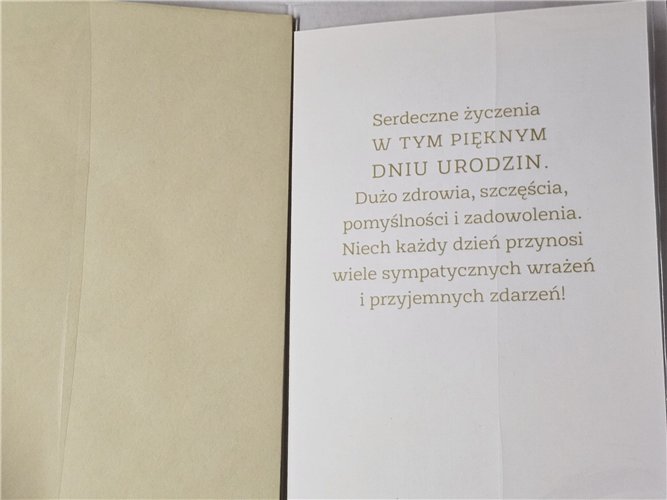 Serdeczne życzenia
W TYM PIĘKNYM
DNIU URODZIN.
Dużo zdrowia, szczęścia,
pomyślności i zadowolenia.
Niech każdy dzień przynosi
wiele sympatycznych wrażeń
i przyjemnych zdarzeń!